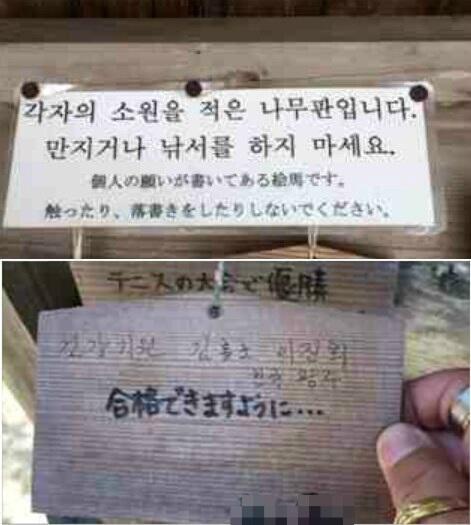 각자의 소원을 적은 나무판입니다.
만지거나 낚서를 하지 마세요.
個人の願いが書いてある絵馬です。
触ったり、落書きをしたりしないでください。
テニスの大会で優勝
건강기원
한국 광주
合格できますように...